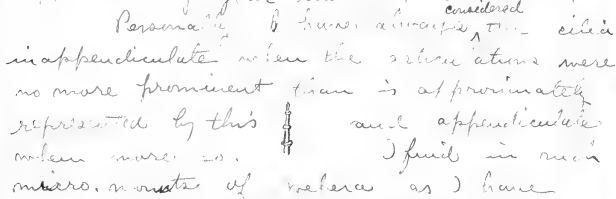 considered
Personally I have always ^ the cilia
inappendiculate when the articulations were
no more prominent than is approximately
represented by this and appendiculate
when more so. I find in such
micro. mounts of as I have